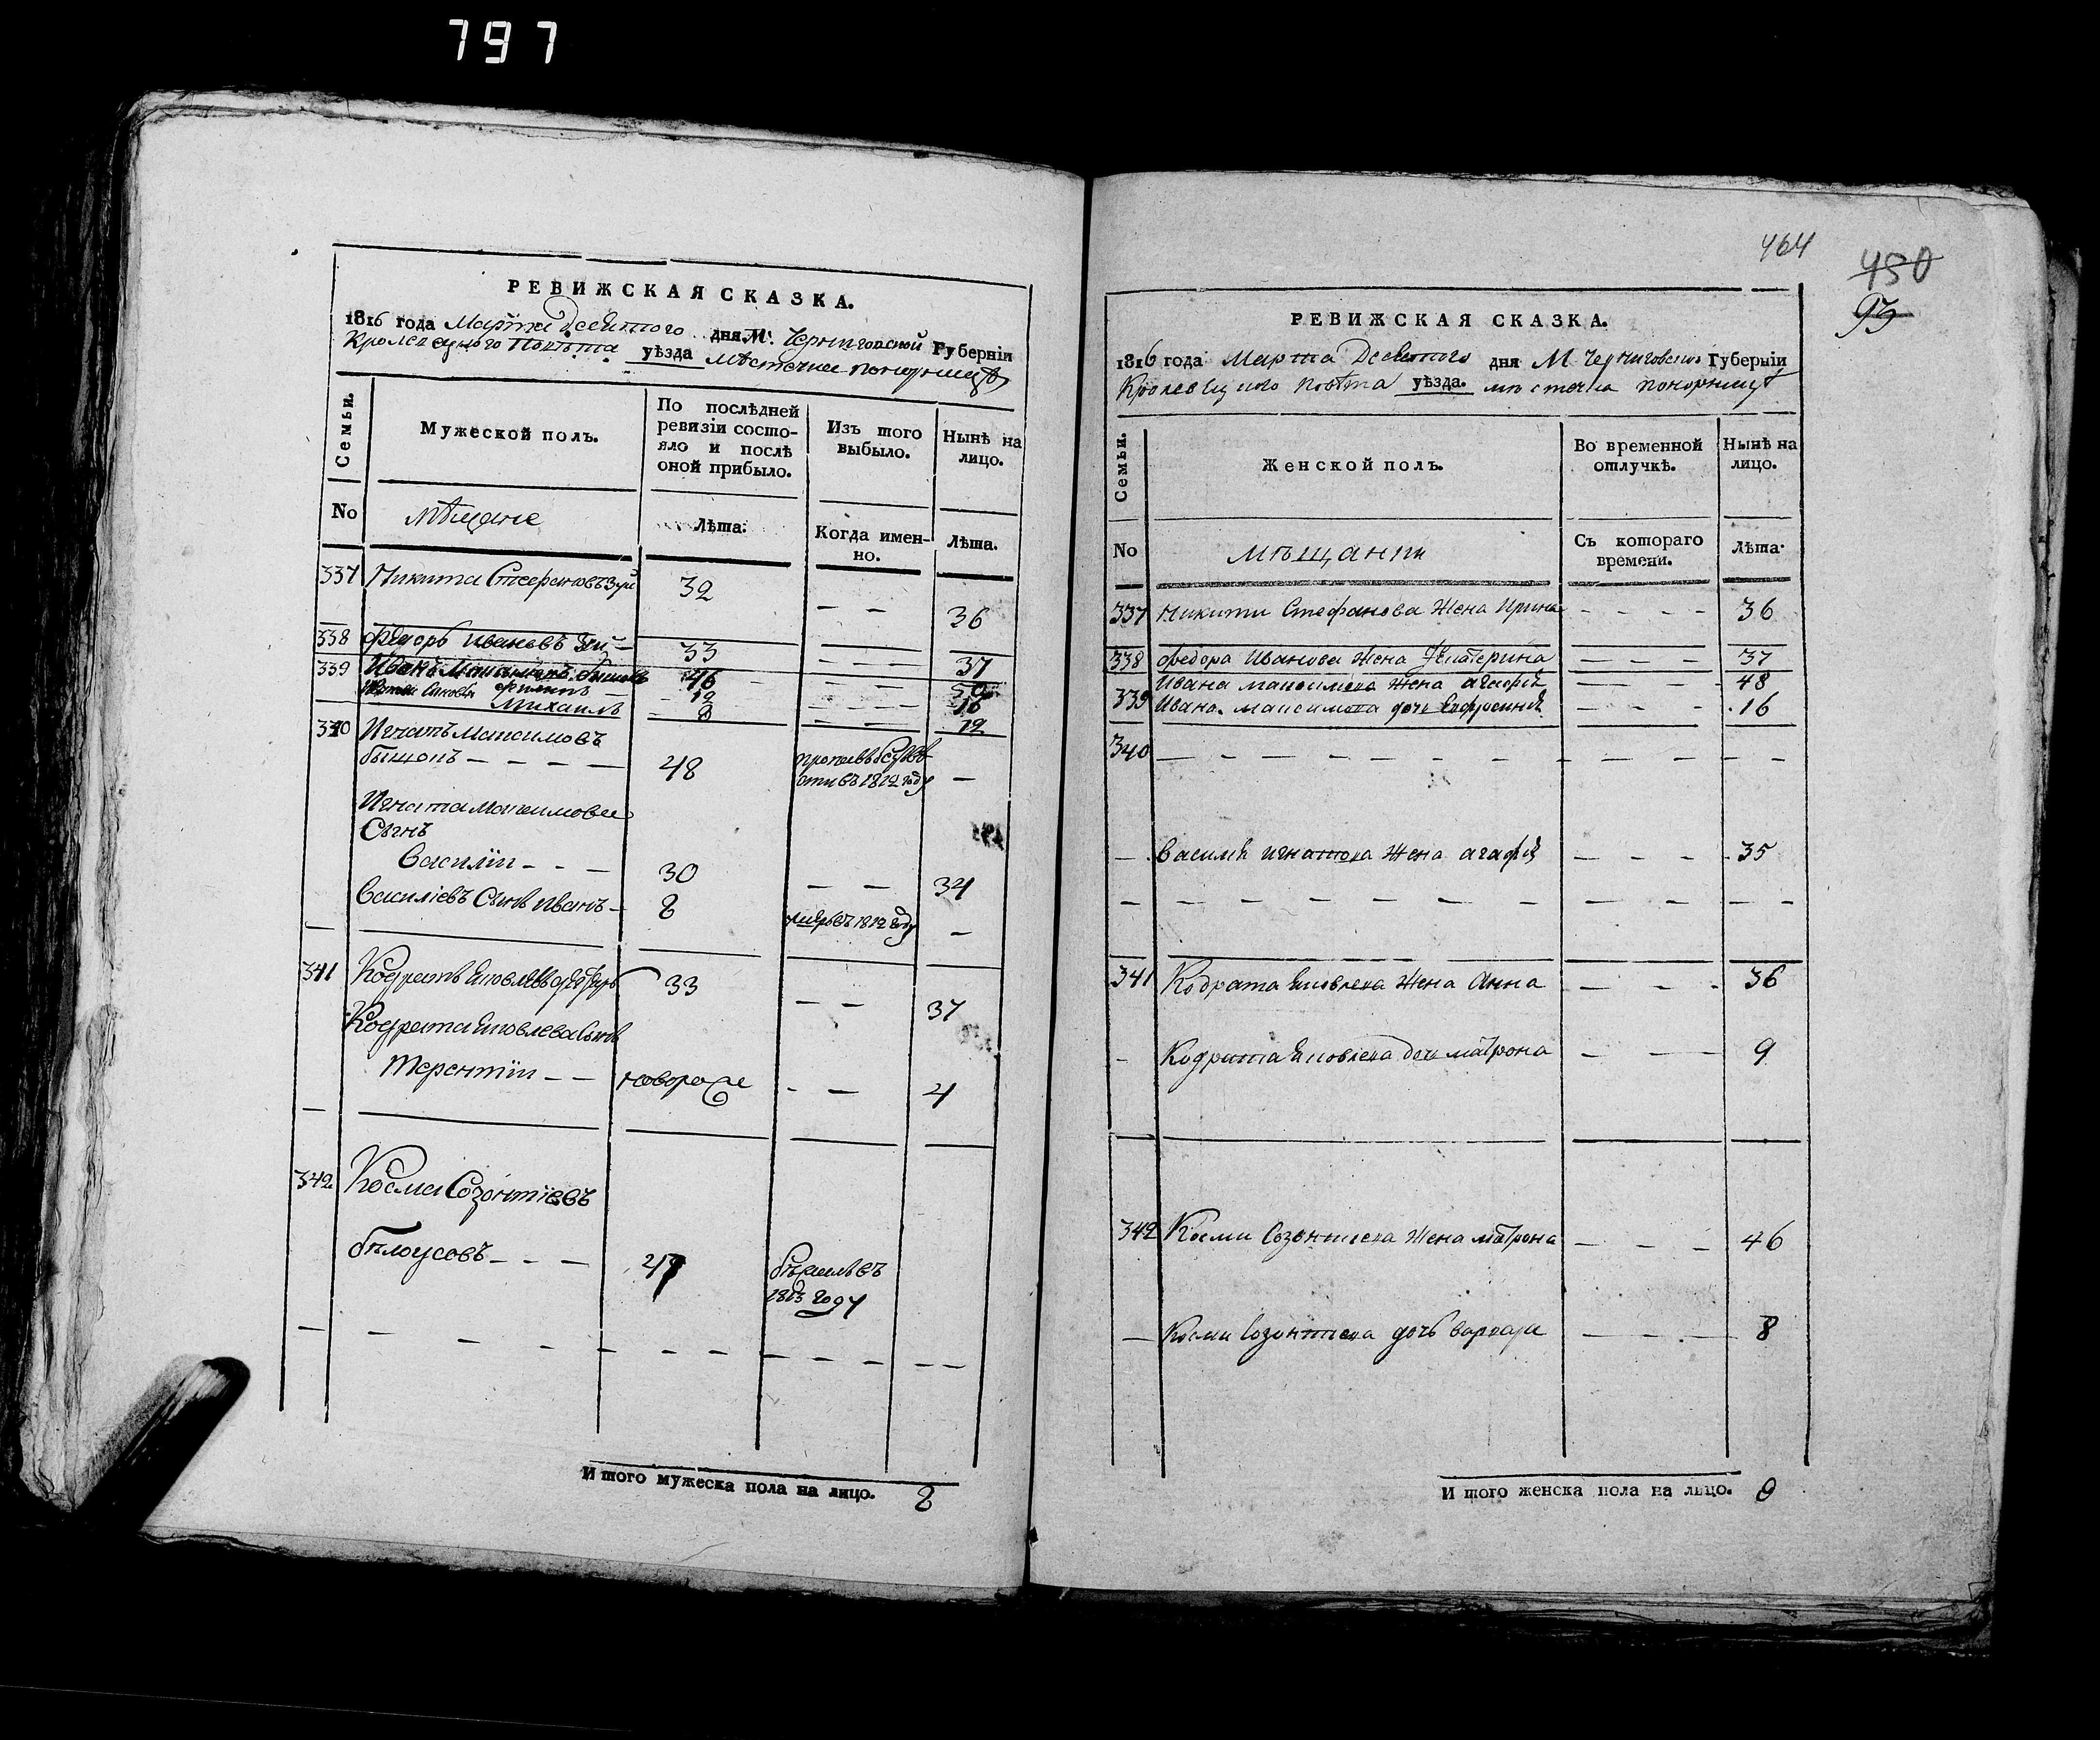 797
РЕВИЖСКАЯ СКАЗКА.
1816 года Марта Десятого дня М. Черниговской Губернїи
Кролевецкого Повѣта уѣзда Мѣстечка Понорницѣ
Семьи.
Мужеской полъ.
По послѣдней ревизїи состояло и послѣ оной прибыло.
Изъ того выбыло.
Нынѣ на лицо.
No
мѣщане
Лѣта.
Когда именно.
Лѣта.
337 Никита Стефановъ Зуй 32 — — 36
338 Федоръ Ивановъ Зуй — 33 — — — 37
339 Иванъ Максимовъ 46 — — — 50
Сыновья Филипъ — 12 — — — 16
Михаилъ 8 — — — 12
340 Игнатъ Максимовъ
— — — — 48 въ 1812 году —
Игната Максимова
Сынъ
Василїй — — — 30 — — 34
Василїевъ Сынъ Иванъ — 8 умеръ въ 1812 году —
341 Кодратъ Яковлевъ 33 — — 37
Кодрата Яковлева Сынъ
Терентїй — — новорож — — 4
342 Косма Созонтїевъ
бѣлоусовъ — — — 47 въ
1813 году
Итого мужеска пола на лицо. 8
464
450
93
РЕВИЖСКАЯ СКАЗКА.
1816 года Марта Десятого дня М Черниговской Губернїи
Кролевецкого Повѣта уѣзда. мѣстечка Понорницѣ
Семьи.
Женской полъ.
Во временной отлучкѣ.
Нынѣ на лицо.
No
мѣщанки
Съ котораго времени.
Лѣта.
337 Никити Стефанова Жена Ирина — — — — 36
338 Федора Иванова Жена Екатерина — — — 37
339 Ивана Максимова Жена Агафия — — — 48
Ивана Максимова дочь Евфросиния — — — 16
340 — — — — — — — — — — —
— Василия Игнатова Жена агафия — — — 35
— — — — — — — — — — —
341 Кодрата Яковлева Жена Анна — — — 36
— Кодрата Яковлева дочь матрона — — — 9
342 Косми Созонтиева Жена матрона — — — 46
— Косми Созонтиева дочь варвара — — — 8
Итого женска пола на лицо. 9